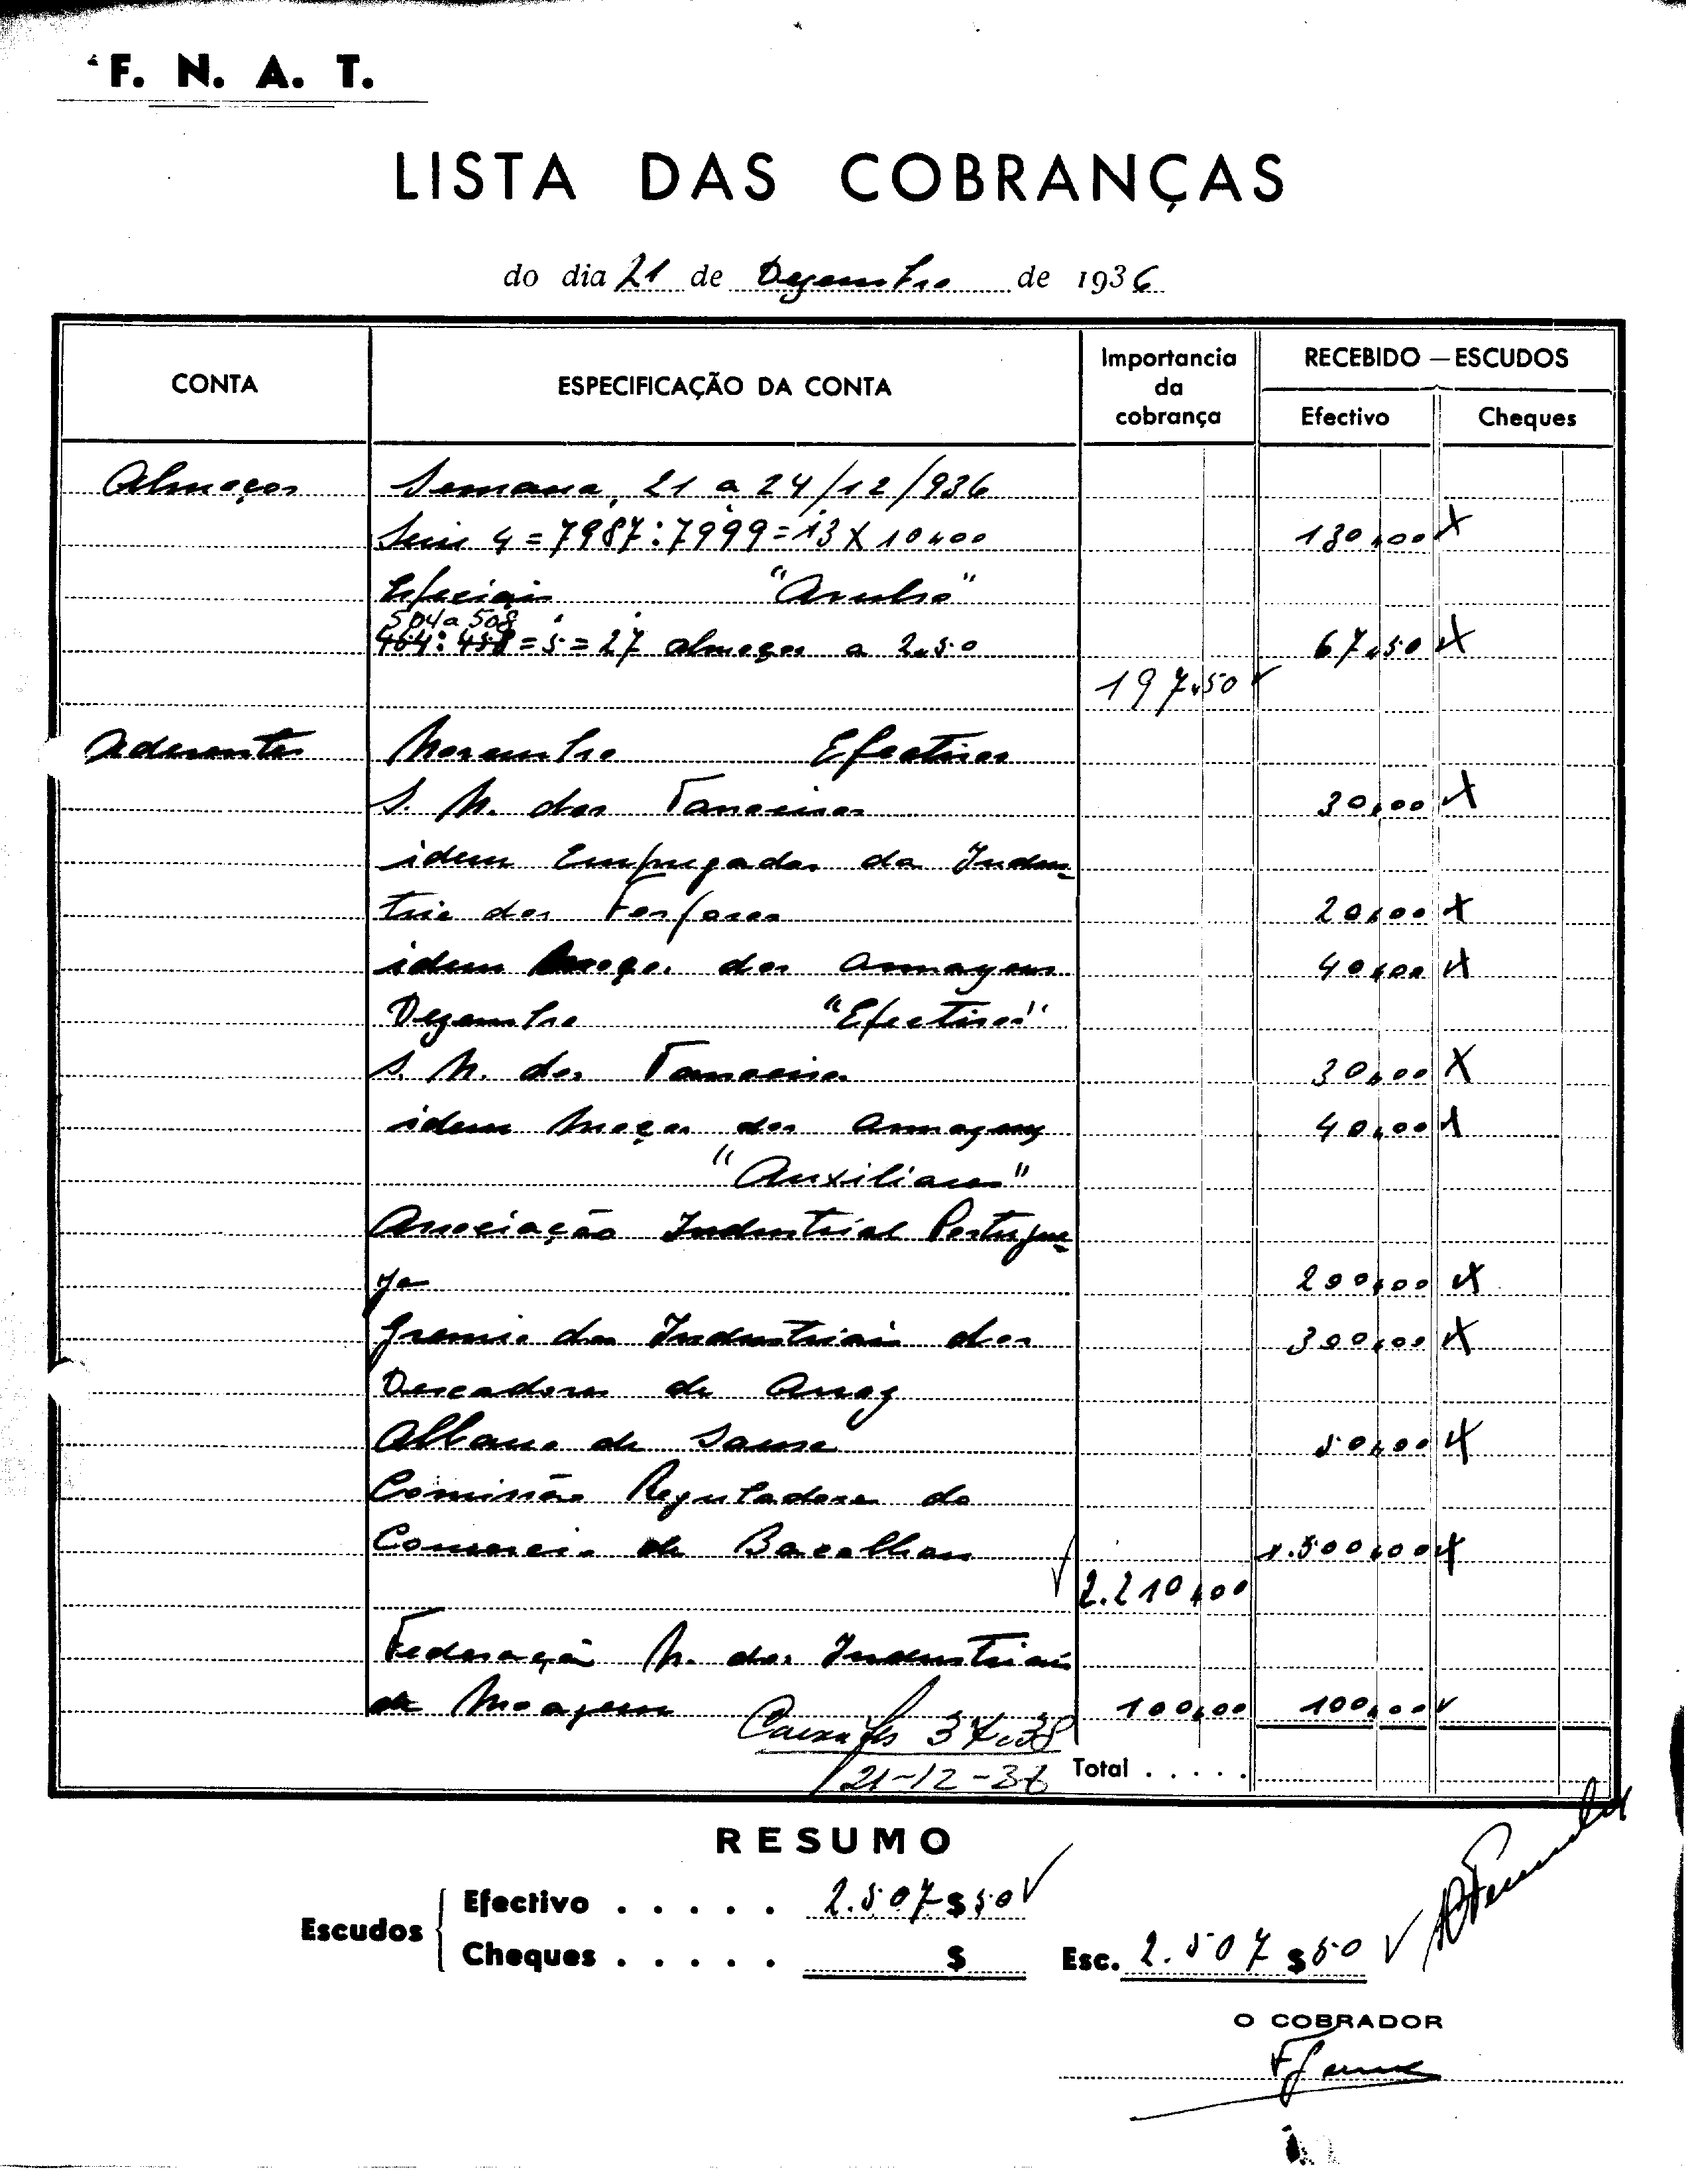 F. N. A. T.
LISTA DAS COBRANÇAS
do dia 21 de Dezembro de 1936
CONTA
ESPECIFICAÇÃO DA CONTA
Importancia da cobrança
RECEBIDO — ESCUDOS
Efectivo
Cheques
Almoços Semana, 21 a 24/12/936
Serie 4 = 7987:7999 = 13 X 10$00 130$00
Especiais "Avulso"
504 a 508
464:458 = 5 = 27 almoços a 2$50 67$50
197$50
Aderentes Novembro Efectivos
S. N. dos Tanoeiros 30$00
idem Empregados da Indus-
tria dos Fosforos 20$00
idem Moços dos Armazens 40$00
Dezembro "Efectivos"
S. N. dos Tanoeiros 30$00
idem Moços dos Armazens 40$00
"Auxiliares"
Associação Industrial Portugue-
za 200$00
Gremio dos Industriais dos 300$00
Descadores de Arroz
Albano de Sousa 50$00
Comissão Reguladora do
Comercio de Bacalhau 1.500$00
2.210$00
Federação N. dos Industriais
de Moagem 100$00 100$00
Caixa fls 37 e 38
21-12-36
Total . . . . .
RESUMO
Escudos
Efectivo . . . . . 2.507$50
Cheques . . . . . $
Esc. 2.507$50
O COBRADOR